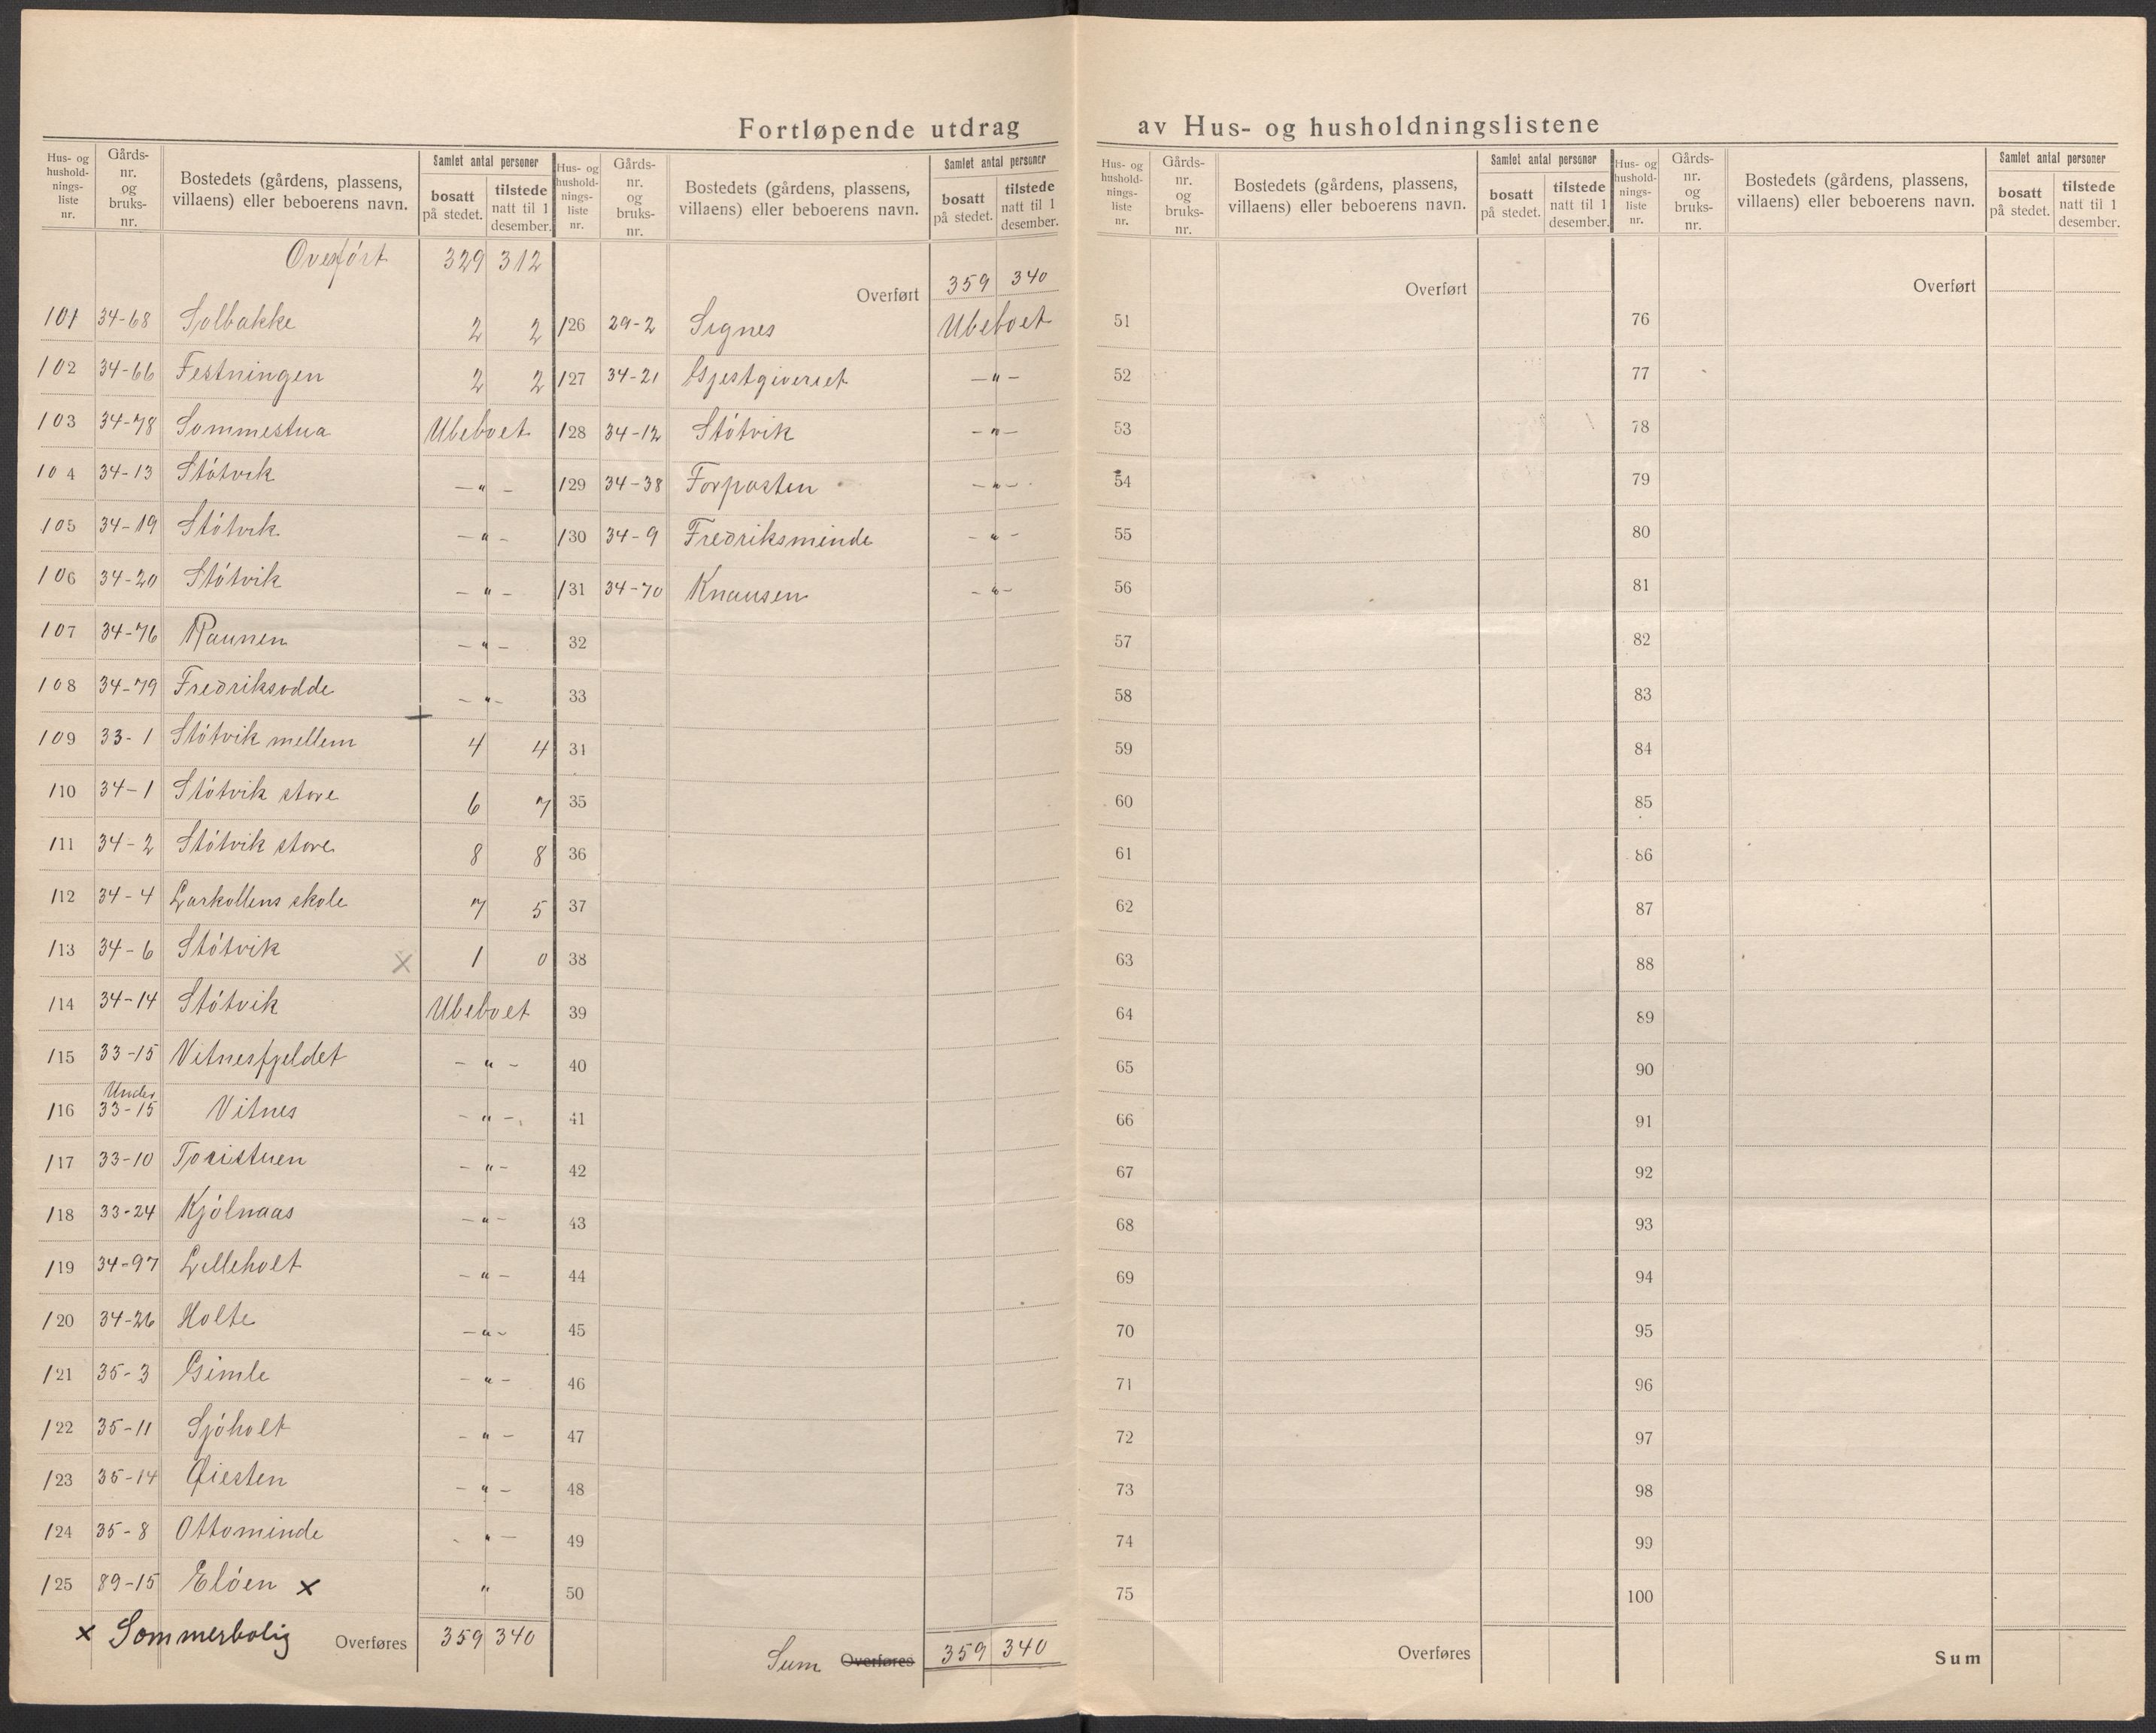 Fortløpende utdrag av Hus- og husholdningslistene
Hus- og husholdnings-liste nr. Gårds-nr. og bruks-nr. Bostedets (gårdens, plassens, villaens) eller beboerens navn. Samlet antal personer bosatt på stedet. tilstede natt til 1 desember.
Overført 329 312
101 34-68 Solbakke 2 2
102 34-66 Festningen 2 2
103 34-78 Sommestua Ubeboet
104 34-13 Støtvik —"—
105 34-19 Støtvik —"—
106 34-20 Støtvik —"—
107 34-76 Raunen —"—
108 34-79 Fredriksodde —"—
109 33-1 Støtvik mellem 4 4
110 34-1 Støtvik store 6 7
111 34-2 Støtvik store 8 8
112 34-4 Larkollens skole 7 5
113 34-6 Støtvik x 1 0
114 34-14 Støtvik Ubeboet
115 33-15 Vitnesfjeldet —"—
116 Under 33-15 Vitnes —"—
117 33-10 —"—
118 33-24 Kjølnaas —"—
119 34-97 Lilleholt —"—
120 34-26 Holte —"—
121 35-3 Gimle —"—
122 35-11 Sjøholt —"—
123 35-14 Øiesten —"—
124 35-8 Ottominde —"—
125 89-15 Eløen x "
x Sommerbolig Overføres 359 340
Hus- og husholdnings-liste nr. Gårds-nr. og bruks-nr. Bostedets (gårdens, plassens, villaens) eller beboerens navn. Samlet antal personer bosatt på stedet. tilstede natt til 1 desember.
Overført 359 340
126 29-2 Signes Ubeboet
127 34-21 Gjestgiveriet —"—
128 34-12 Støtvik —"—
129 34-38 Forposten —"—
130 34-9 Fredriksminde —"—
131 34-70 Knausen —"—
32
33
34
35
36
37
38
39
40
41
42
43
44
45
46
47
48
49
50
Sum Overføres 359 340
Hus- og husholdnings-liste nr. Gårds-nr. og bruks-nr. Bostedets (gårdens, plassens, villaens) eller beboerens navn. Samlet antal personer bosatt på stedet. tilstede natt til 1 desember.
Overført
51
52
53
54
55
56
57
58
59
60
61
62
63
64
65
66
67
68
69
70
71
72
73
74
75
Overføres
Hus- og husholdnings-liste nr. Gårds-nr. og bruks-nr. Bostedets (gårdens, plassens, villaens) eller beboerens navn. Samlet antal personer bosatt på stedet. tilstede natt til 1 desember.
Overført
76
77
78
79
80
81
82
83
84
85
86
87
88
89
90
91
92
93
94
95
96
97
98
99
100
Sum